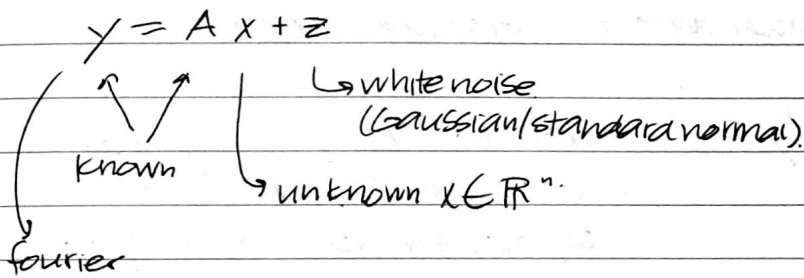 y = A x + z
white noise
(Gaussian/standard normal).
known
unknown x ∈ ℝⁿ.
fourier